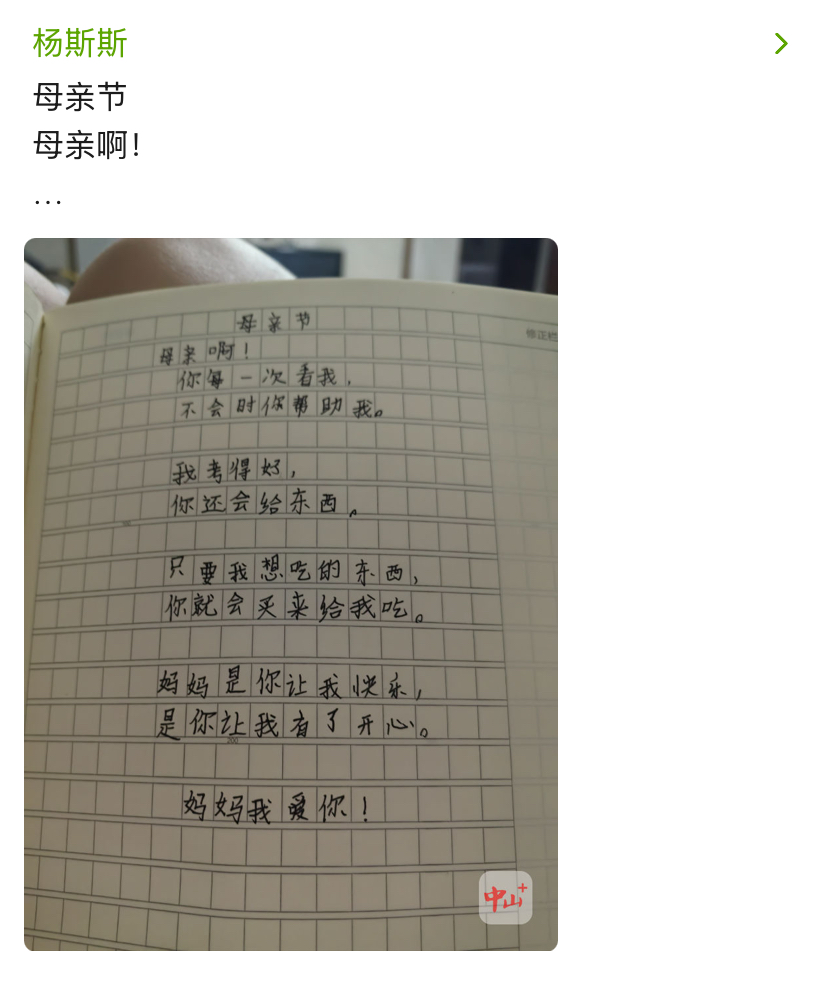 杨斯斯
母亲节
母亲啊！
…
母亲节
修正栏
母亲啊！
你每一次看我，
不会时你帮助我。
我考得好，
你还会给东西。
只要我想吃的东西，
你就会买来给我吃。
妈妈是你让我快乐，
是你让我有了开心。
200
妈妈我爱你！
中山+